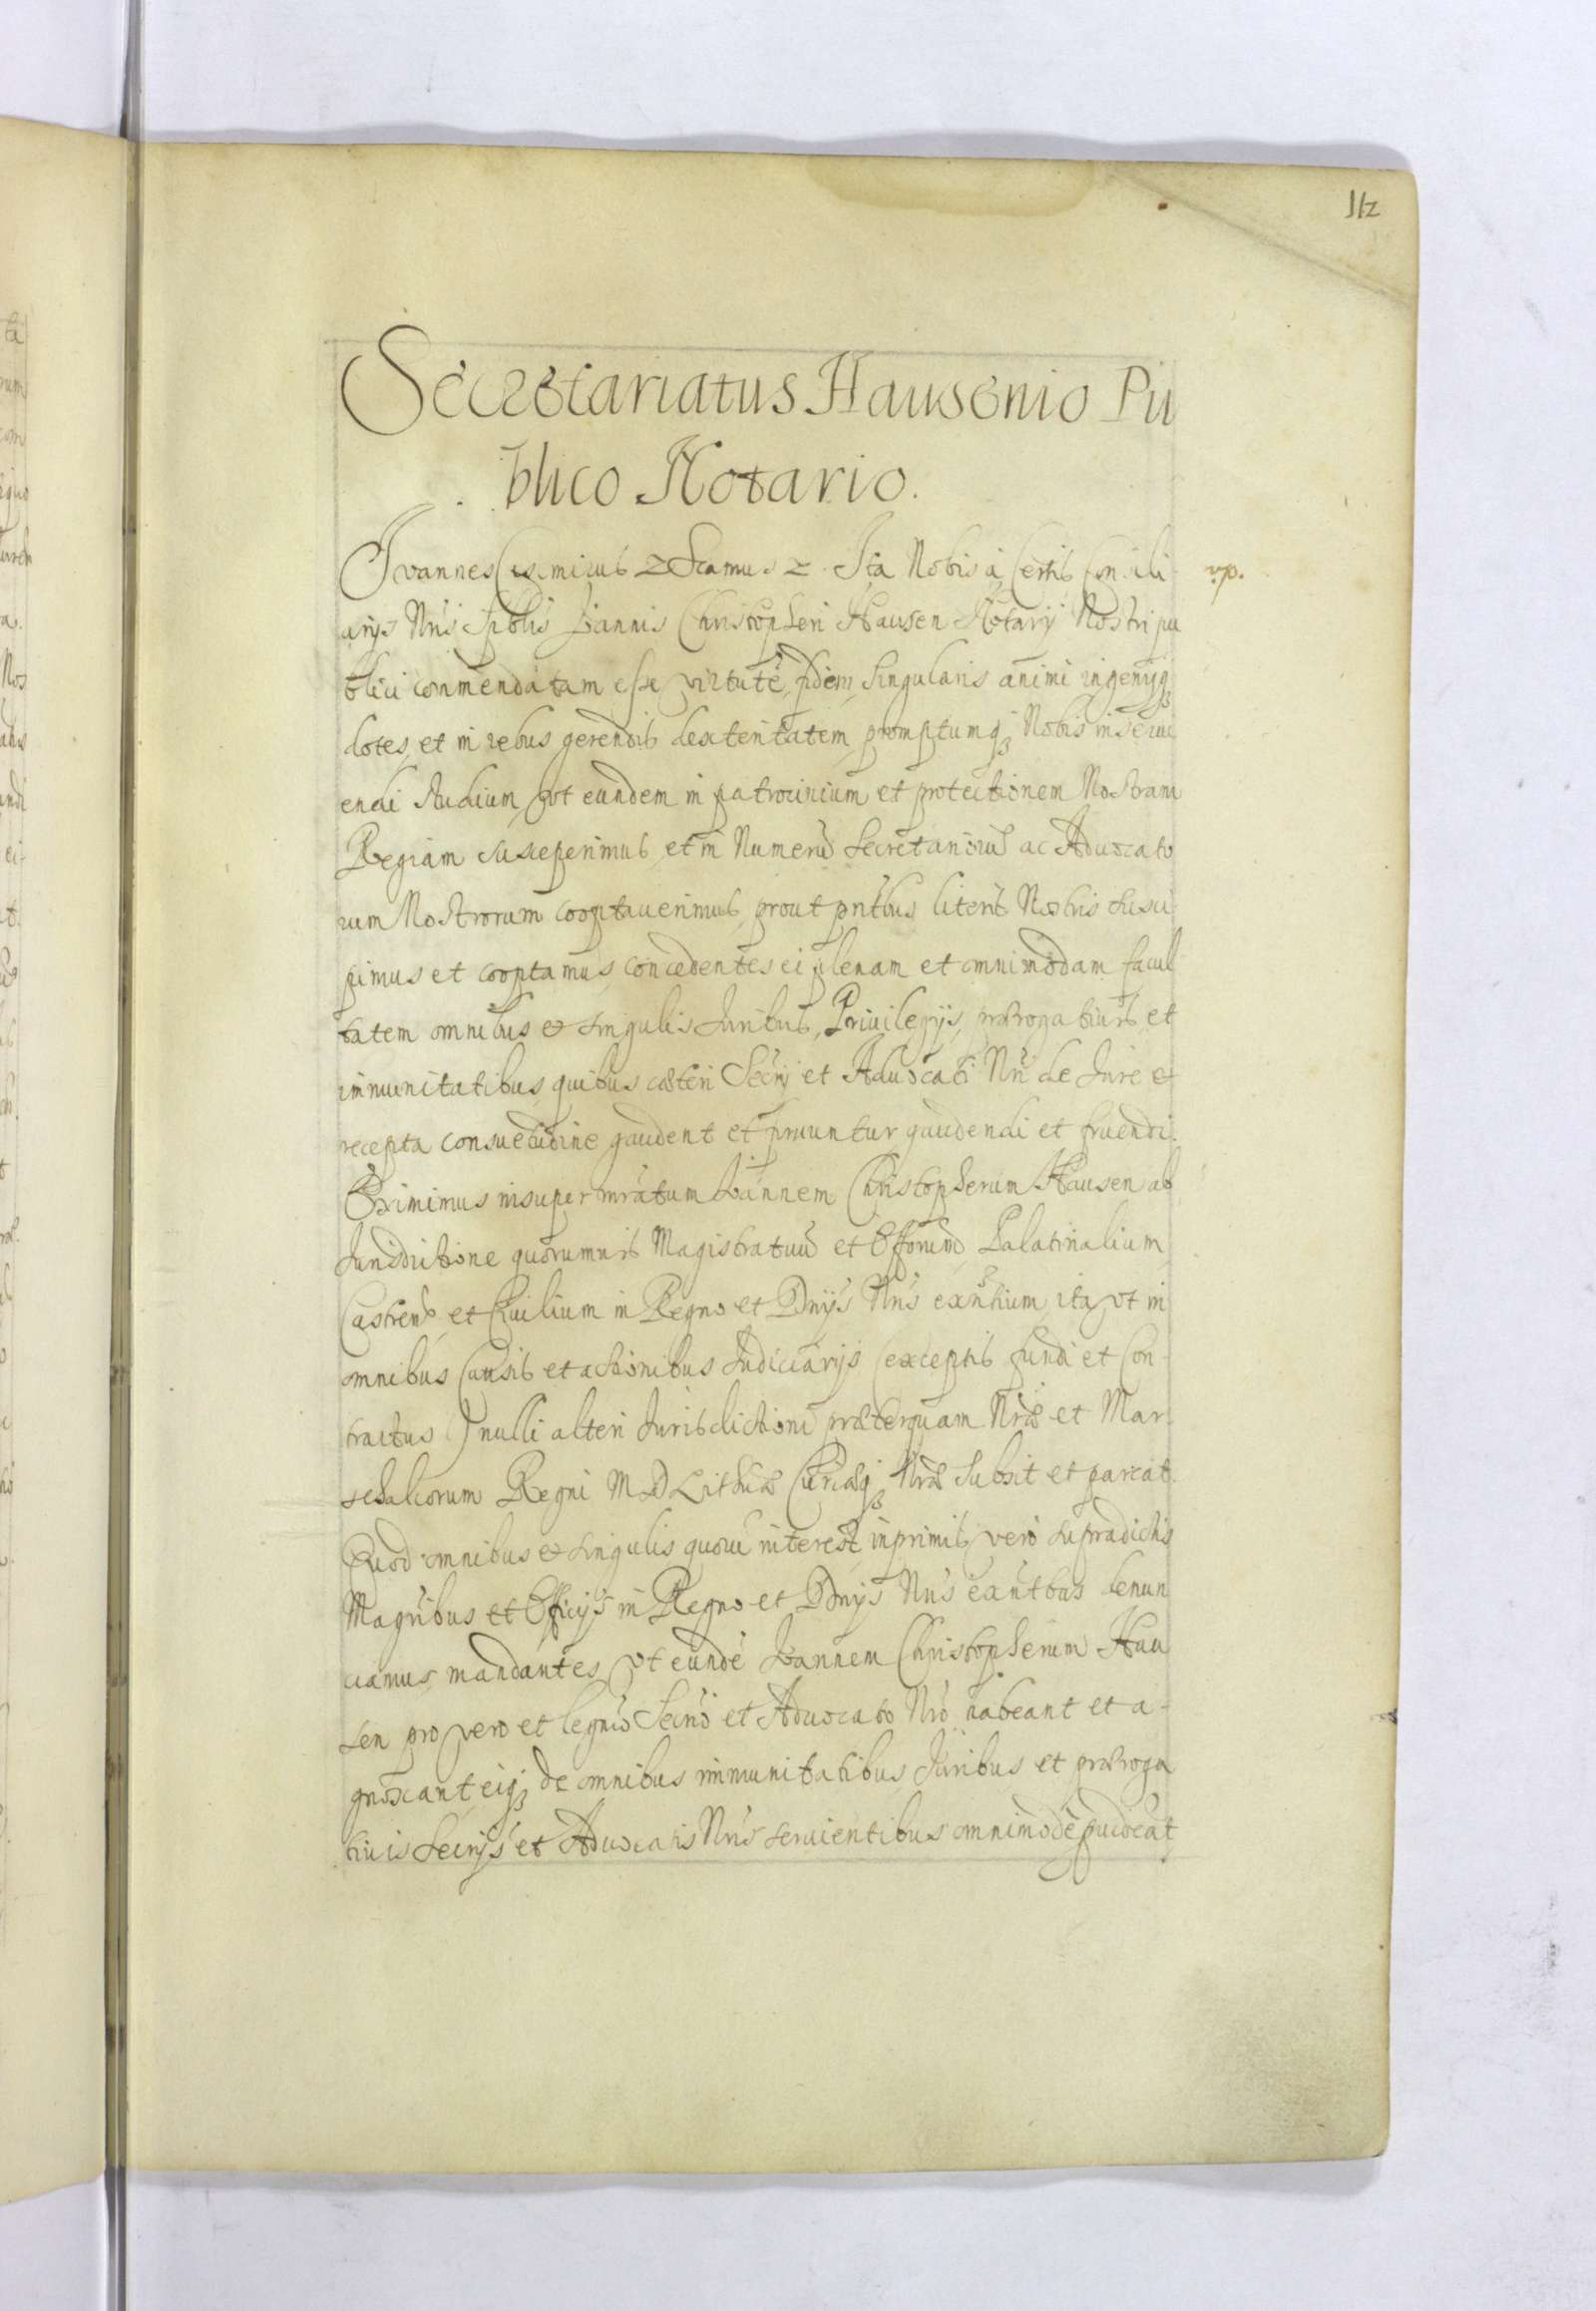 112
Secretariatus Hausenio Pu
blico Notario.
Joannes Casimirus etc Scamus etc. Ita Nobis à Certis Consili-
arijs Nris Spblis Joannis Christopheri Hausen Notarij Nostri pu
blici conmendatam esse virtutē, fidem, singularis animi ingenijq3
dotes, et in rebus gerendis dexteritatem promptumq3 Nobis inserui
endi studium, vt eundem in patrocinium et protectionem Nostram
Regiam susceperimus, et in Numerū Secretariorū ac Aduocato
rum Nostrorum cooptauerimus, prout pntibus literis Nostris susci
pimus et cooptamus, concedentes ei plenam et omnimodam facul
tatem omnibus et singulis Juribus, Priuilegijs, prærogatiuis et
immunitatibus quibus cæteri Secrij et Aduocati Nri de Jure et
recepta consuetudine gaudent et fruuntur gaudendi et fruendi.
Eximimus insuper mratum Joannem Christopherum Hausen ab
Jurisdictione quorumuis Magistratuū et Offorum Palatinalium
Castrens et Ciuilium in Regno et Dnijs Nris exntium, ita vt in
omnibus Causis et actionibus Judiciarijs (exceptis fundi et Con-
tractus) nulli alteri Jurisdictioni præterquam Nræ et Mar
schalcorum Regni M D Lithuæ Curiæq3 Nræ subsit et pareat.
Quod omnibus et singulis quorū interest, inprimis vero supradictis
Magribus et Officijs in Regno et Dnijs Nris exantbus denun
ciamus, mandantes vt eundē Joannem Christopherum Hau
sen pro vero et legmo Secrio et Aduocato Nro habeant et a-
gnoscant, eiq3 de omnibus immunitatibus Juribus et præroga
tiuis Secrijs et Aduocatis Nris seruientibus omnimode puideat